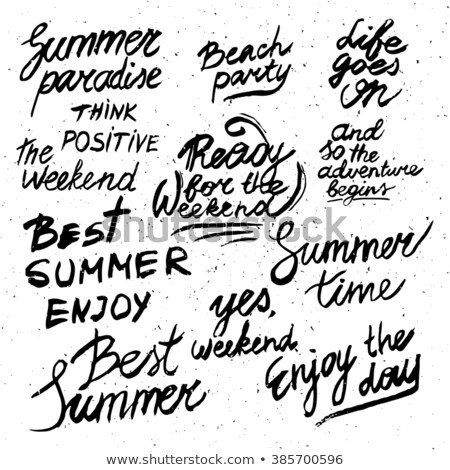 Summer
paradise
THINK
POSITIVE
the
Weekend
Beach
party
Life
goes
on
Ready
for the
Weekend
and
so the
adventure
begins
BEST
SUMMER
ENJOY
Summer
time
yes,
weekend
Best
Summer
Enjoy the
day
shutterstock
www.shutterstock.com · 385700596